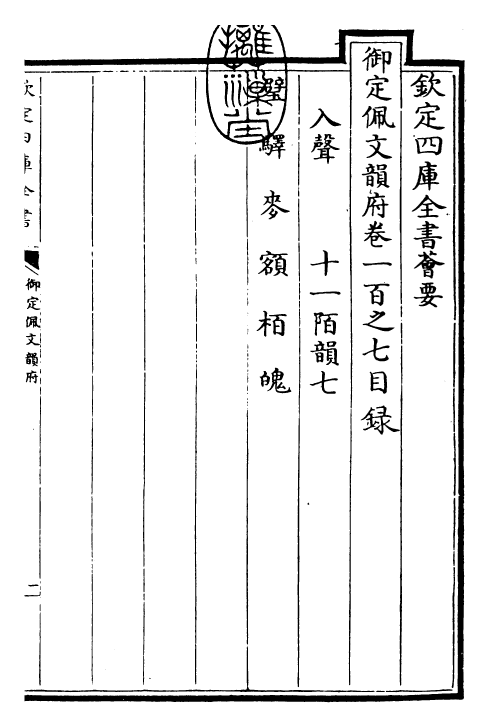 欽定四庫全書薈要
御定佩文韻府卷一百之七目録
入聲　十一陌韻七
璧　驛　麥　額　栢　魄
欽定四庫全書
御定佩文韻府
二